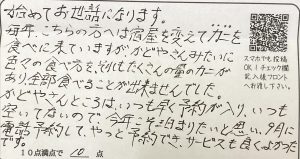 始めてお世話になります。
毎年、こちらの方へは宿屋を変えてカニを
食べに来ていますが、かどやさんみたいに
色々の食べ方を、それもたくさんの量のカニが
あり全部食べることが出来ませんでした。
かどやさんところは、いつも早く予約が入り、いつも
空いてないので、今年こそ泊まりたいと思い、7月に
電話予約して、やっと予約でき、サービスも良くよかった
です。
10点満点で 10 点
スマホでも投稿
OK！チェック欄
記入後フロント
へお渡し下さい。